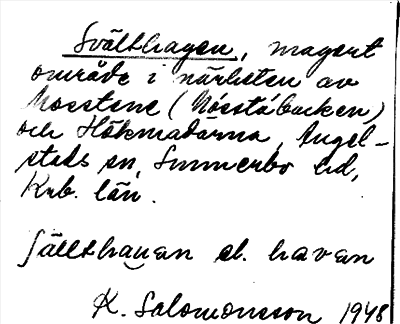 Svälthagen, magert
område i närheten av
Mosstena (Mósstábacken)
och Hökmadarna, Angel-
stads sn, Sunnerbo hd,
Krb. län.
havan
K. Salomonsson 1948